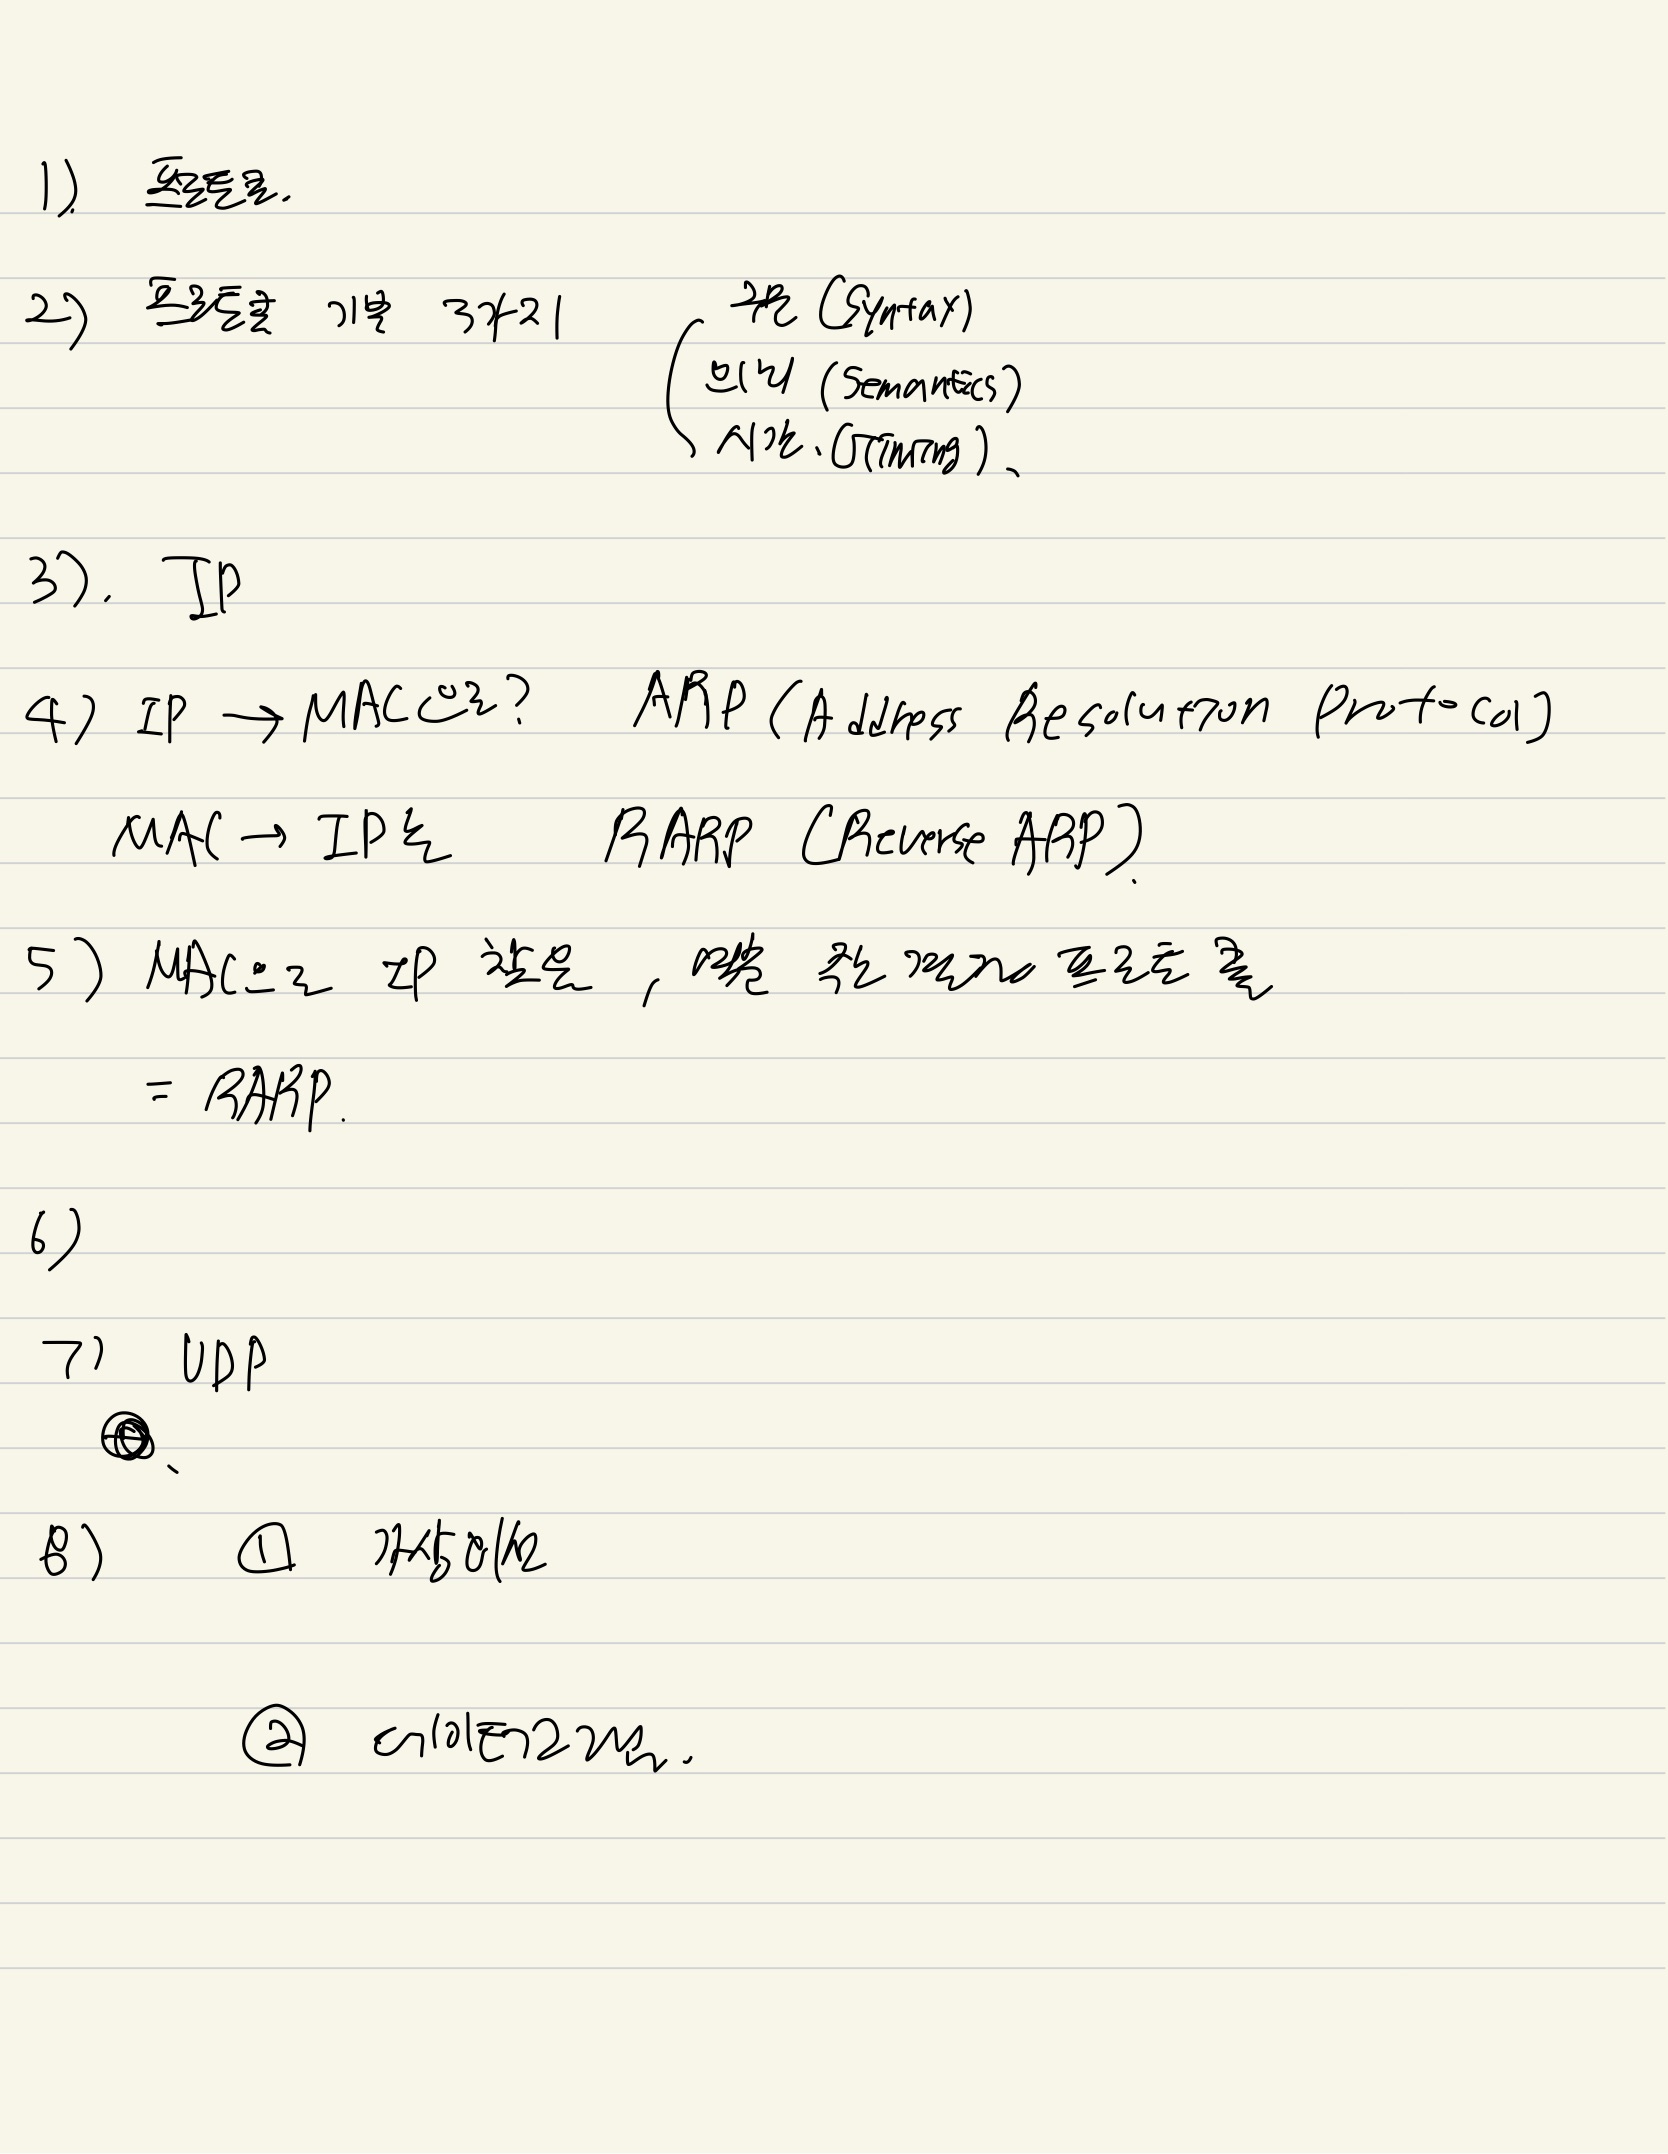 1). 프로토콜.
2) 프로토콜 기본 3가지 구문 (Syntax)
의미 (Semantics)
시간. (Timing).
3). IP
4) IP → MAC으로? ARP (Address Resolution Protocol)
MAC → IP는 RARP (Reverse ARP).
5) MAC으로 IP 찾은, 프로토콜
= RARP.
6)
7) UDP
8) ① 가상회선
② 데이터그램.